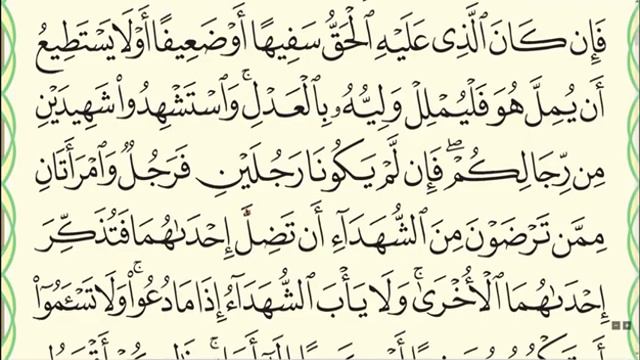 فَإِن كَانَ ٱلَّذِى عَلَيْهِ ٱلْحَقُّ سَفِيهًا أَوْ ضَعِيفًا أَوْ لَا يَسْتَطِيعُ
أَن يُمِلَّ هُوَ فَلْيُمْلِلْ وَلِيُّهُۥ بِٱلْعَدْلِ ۚ وَٱسْتَشْهِدُوا۟ شَهِيدَيْنِ
مِن رِّجَالِكُمْ ۖ فَإِن لَّمْ يَكُونَا رَجُلَيْنِ فَرَجُلٌ وَٱمْرَأَتَانِ
مِمَّن تَرْضَوْنَ مِنَ ٱلشُّهَدَآءِ أَن تَضِلَّ إِحْدَىٰهُمَا فَتُذَكِّرَ
إِحْدَىٰهُمَا ٱلْأُخْرَىٰ ۚ وَلَا يَأْبَ ٱلشُّهَدَآءُ إِذَا مَا دُعُوا۟ ۚ وَلَا تَسْـَٔمُوٓا۟